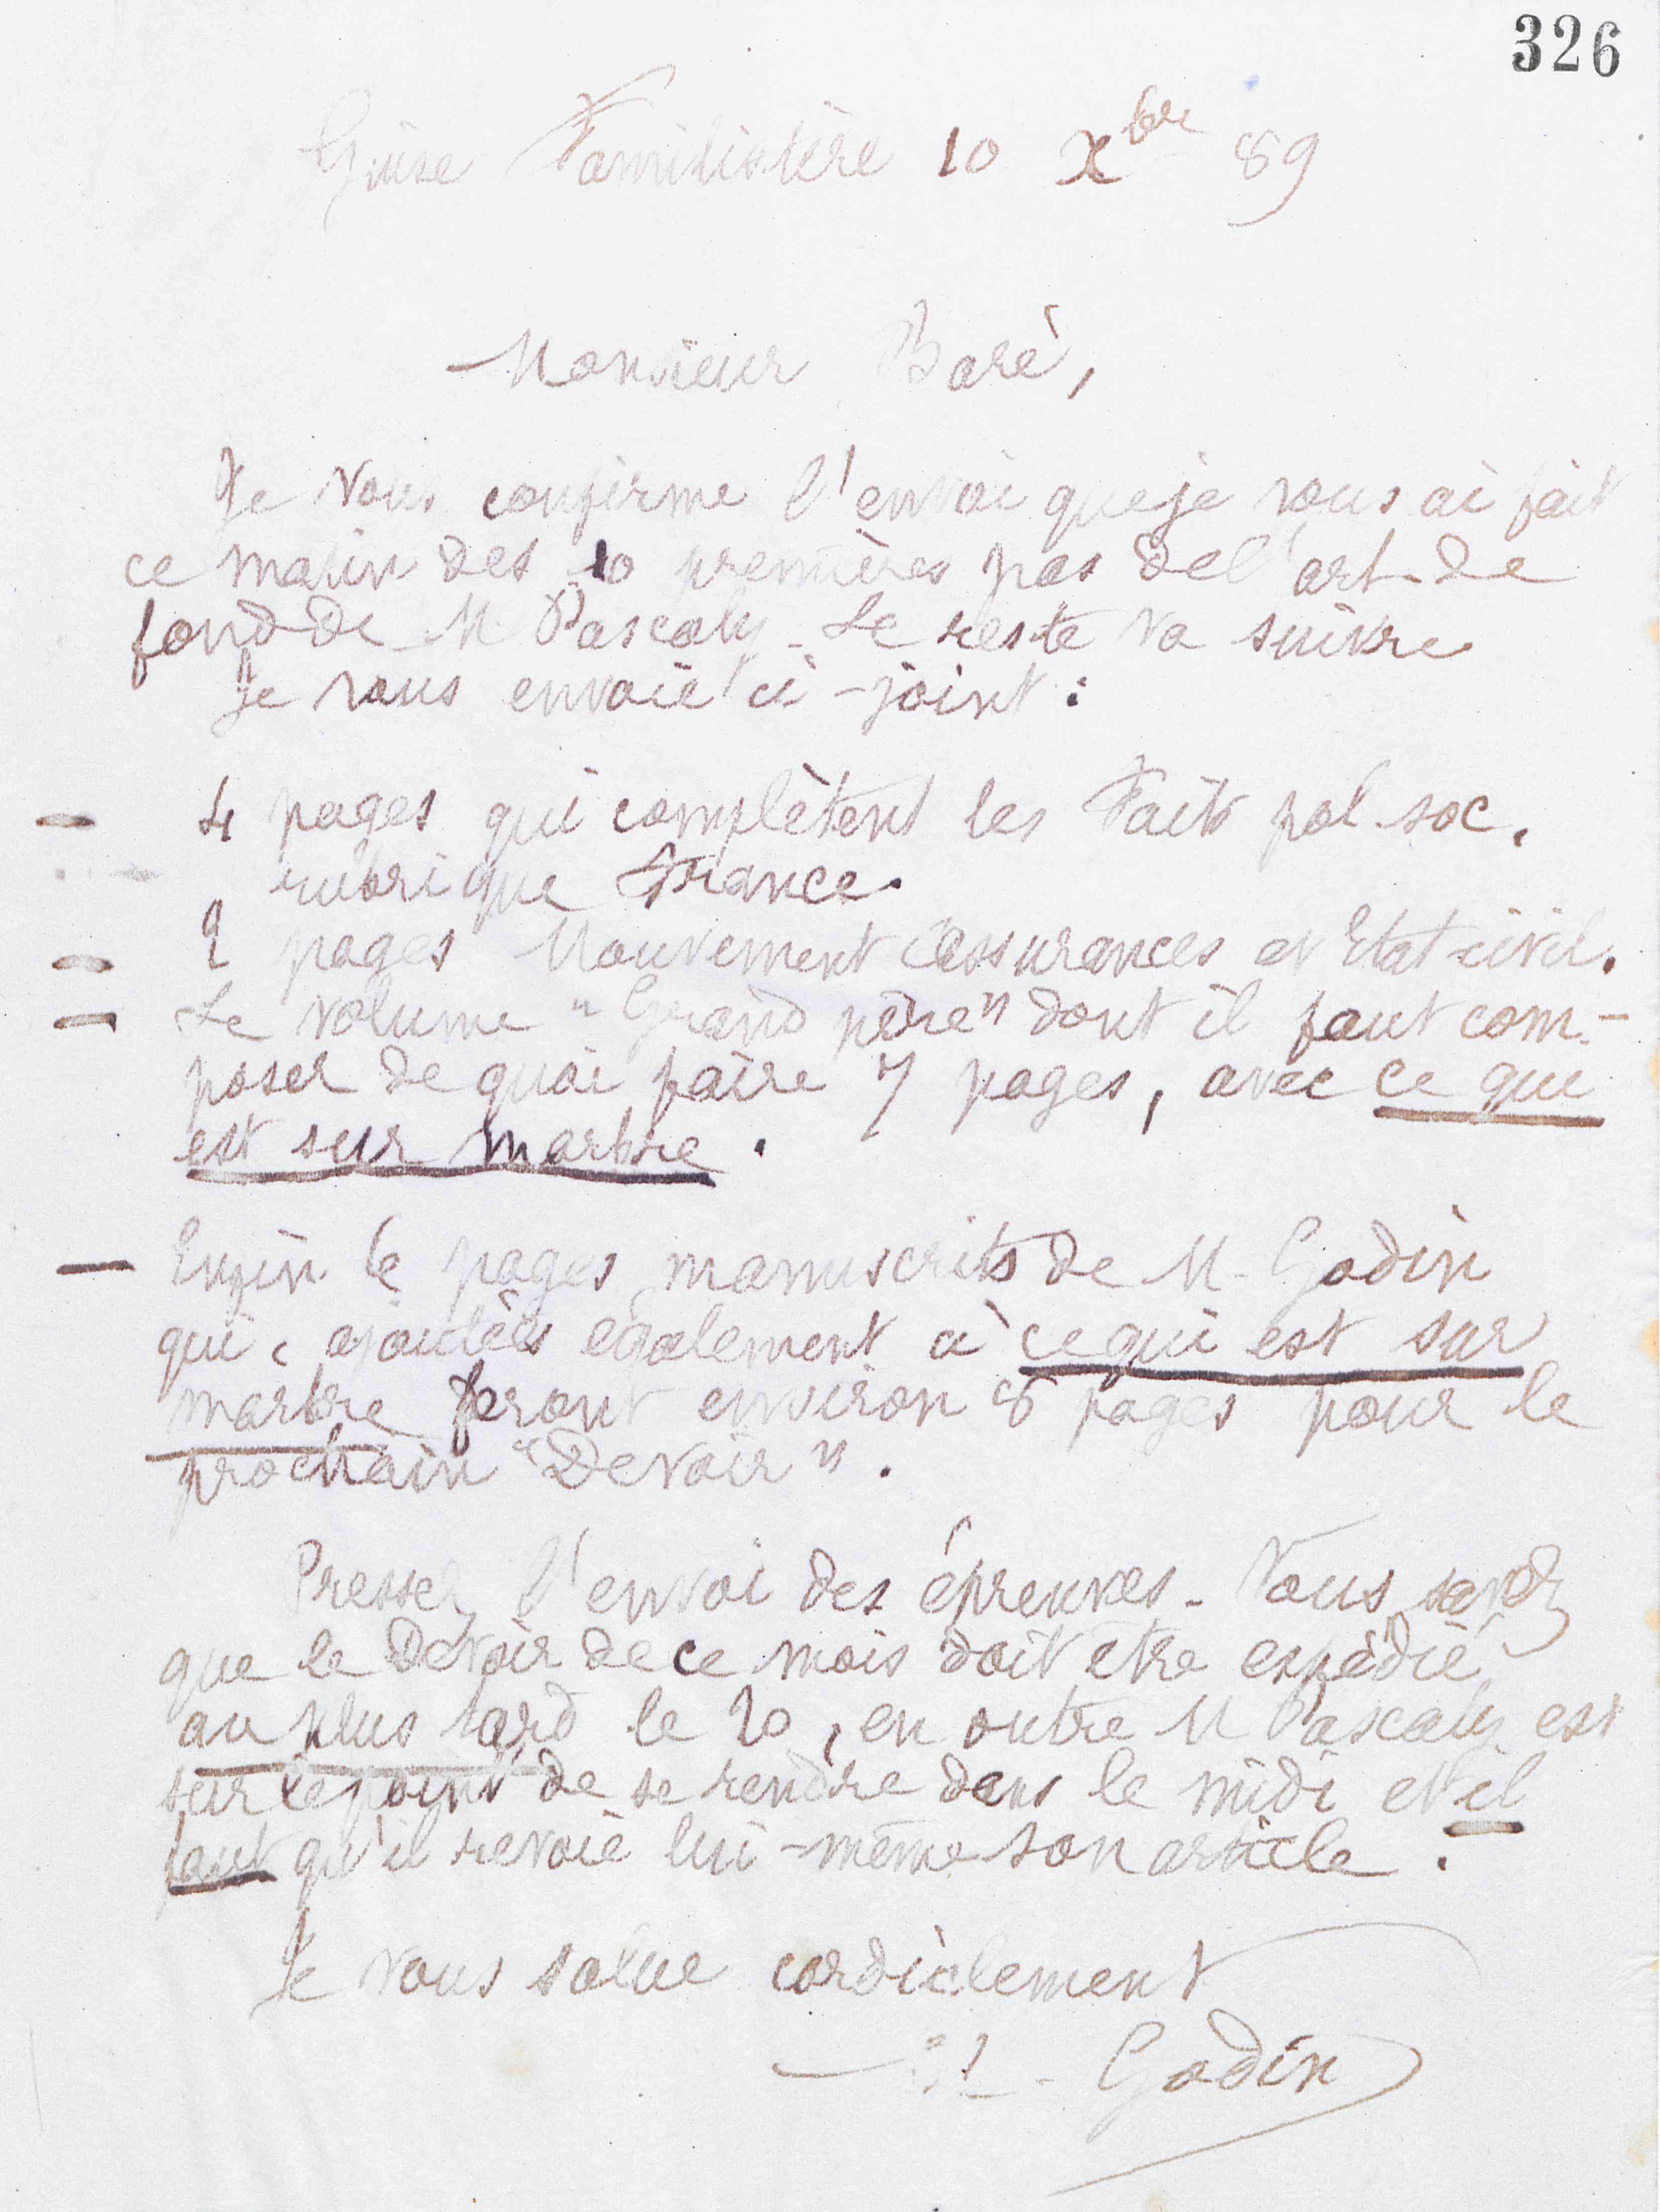 326
Guise Familistère 10 Xbre 89
Monsieur Baré,
Je vous confirme l'envoi que je vous ai fait
ce matin des 10 premières pas de l'art. de
fond de M. Pascaly - Le reste va suivre
Je vous envoie ci-joint :
- 4 pages qui complètent les Faits pol. soc.
rubrique France.
- 2 pages Mouvement assurances et Etat civil.
- Le volume "Grand père" dont il faut com-
poser de quoi faire 7 pages, avec ce qui
est sur marbre.
- Enfin le pages manuscrits de M. Godin
qui, ajoutées également à ce qui est sur
marbre feront environ 8 pages pour le
prochain "Devoir".
Pressez l'envoi des épreuves - Vous savez
que le Devoir de ce mois doit être expédié
au plus tard le 20, en outre M Pascaly est
sur le point de se rendre dans le midi et il
faut qu'il revoie lui-même son article.
Je vous salue cordialement
Godin